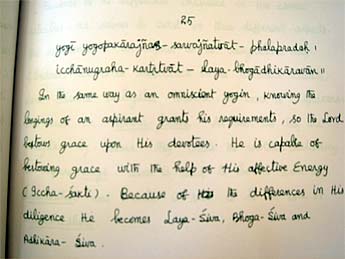 25
yogī yogopakārajñas-sarvajñatvāt-phalapradaḥ ।
icchānugraha-kartṛtvāt-laya-bhogādhikāravān ॥
In the same way as an omniscient yogin, knowing the
longings of an aspirant grants his requirements, so the Lord
bestows grace upon His devotees. He is capable of
bestowing grace with the help of His affective Energy
(Iccha-śakti). Because of the differences in His
diligence He becomes Laya-Śiva, Bhoga-Śiva and
Adhikāra-Śiva.